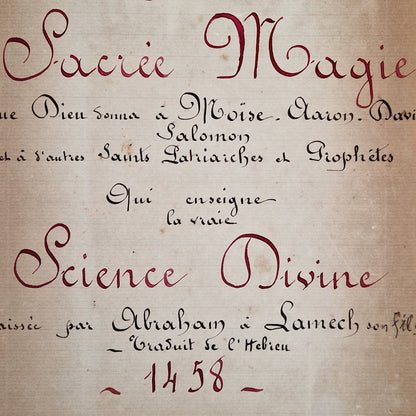 Sacrée Magie
ue Dieu donna à Moïse. Aaron. Davi
Salomon
et à d'autres Saints Patriarches et Prophètes
Qui enseigne
la vraie
Science Divine
aissée par Abraham à Lamech son fils
– Traduit de l'Hébreu
– 1458 –